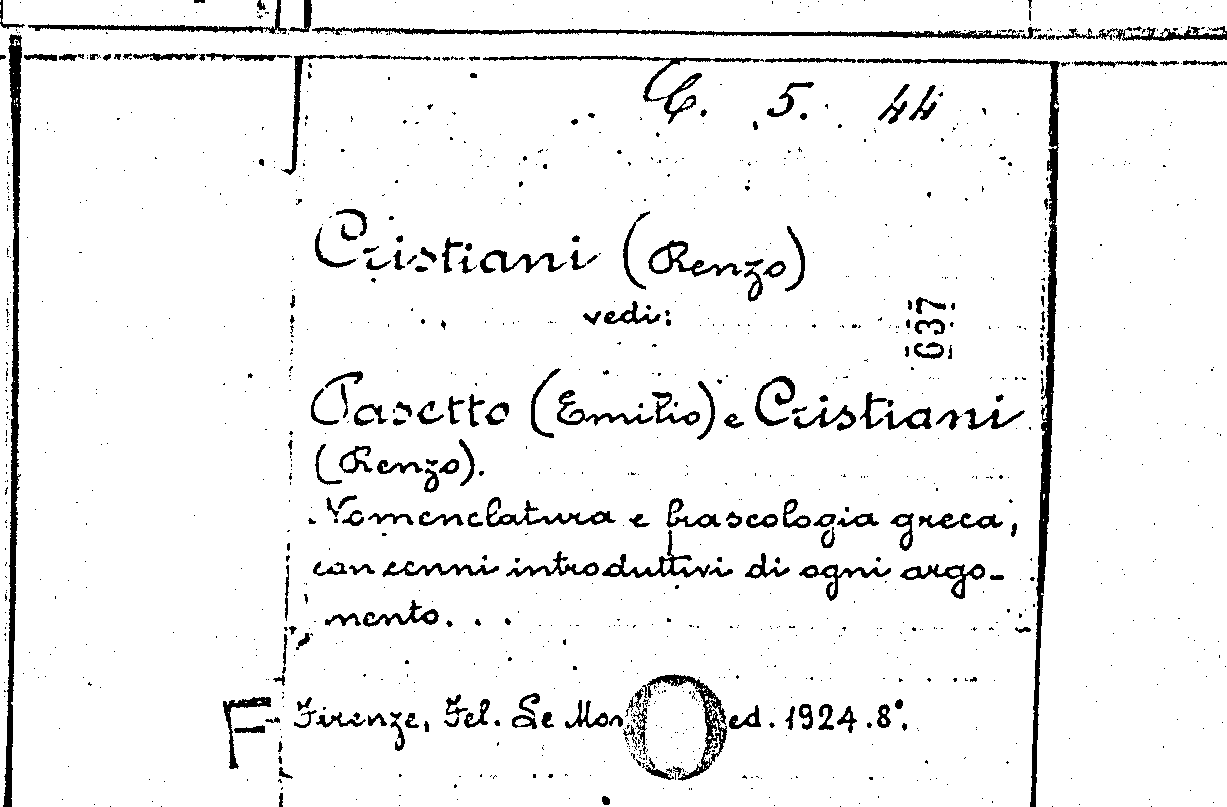 C. 5. 44
Cristiani (Renzo)
vedi:
637
Pasetto (Emilio) e Cristiani
(Renzo).
Nomenclatura e fraseologia greca,
con cenni introduttivi di ogni argo-
mento...
F
Firenze, Fel. Le Mon ed. 1924. 8°.